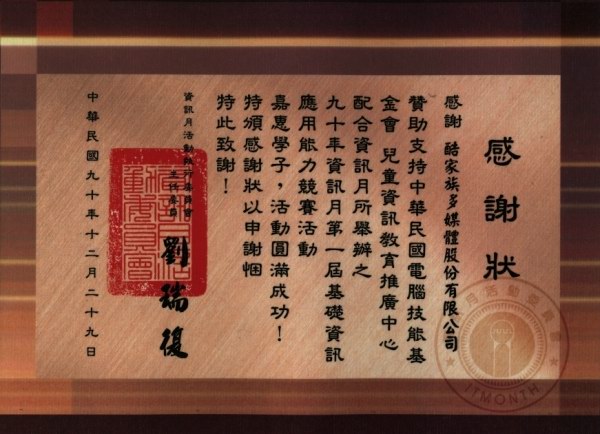 感謝狀
感謝 酷家族多媒體股份有限公司
贊助支持中華民國電腦技能基
金會 兒童資訊教育推廣中心
配合資訊月所舉辦之
九十年資訊月第一屆基礎資訊
應用能力競賽活動
嘉惠學子，活動圓滿成功！
特頒感謝狀以申謝悃
特此致謝！
資訊月活動執行委員會
主任委員 劉瑞復
中華民國九十年十二月二十九日
ITMONTH